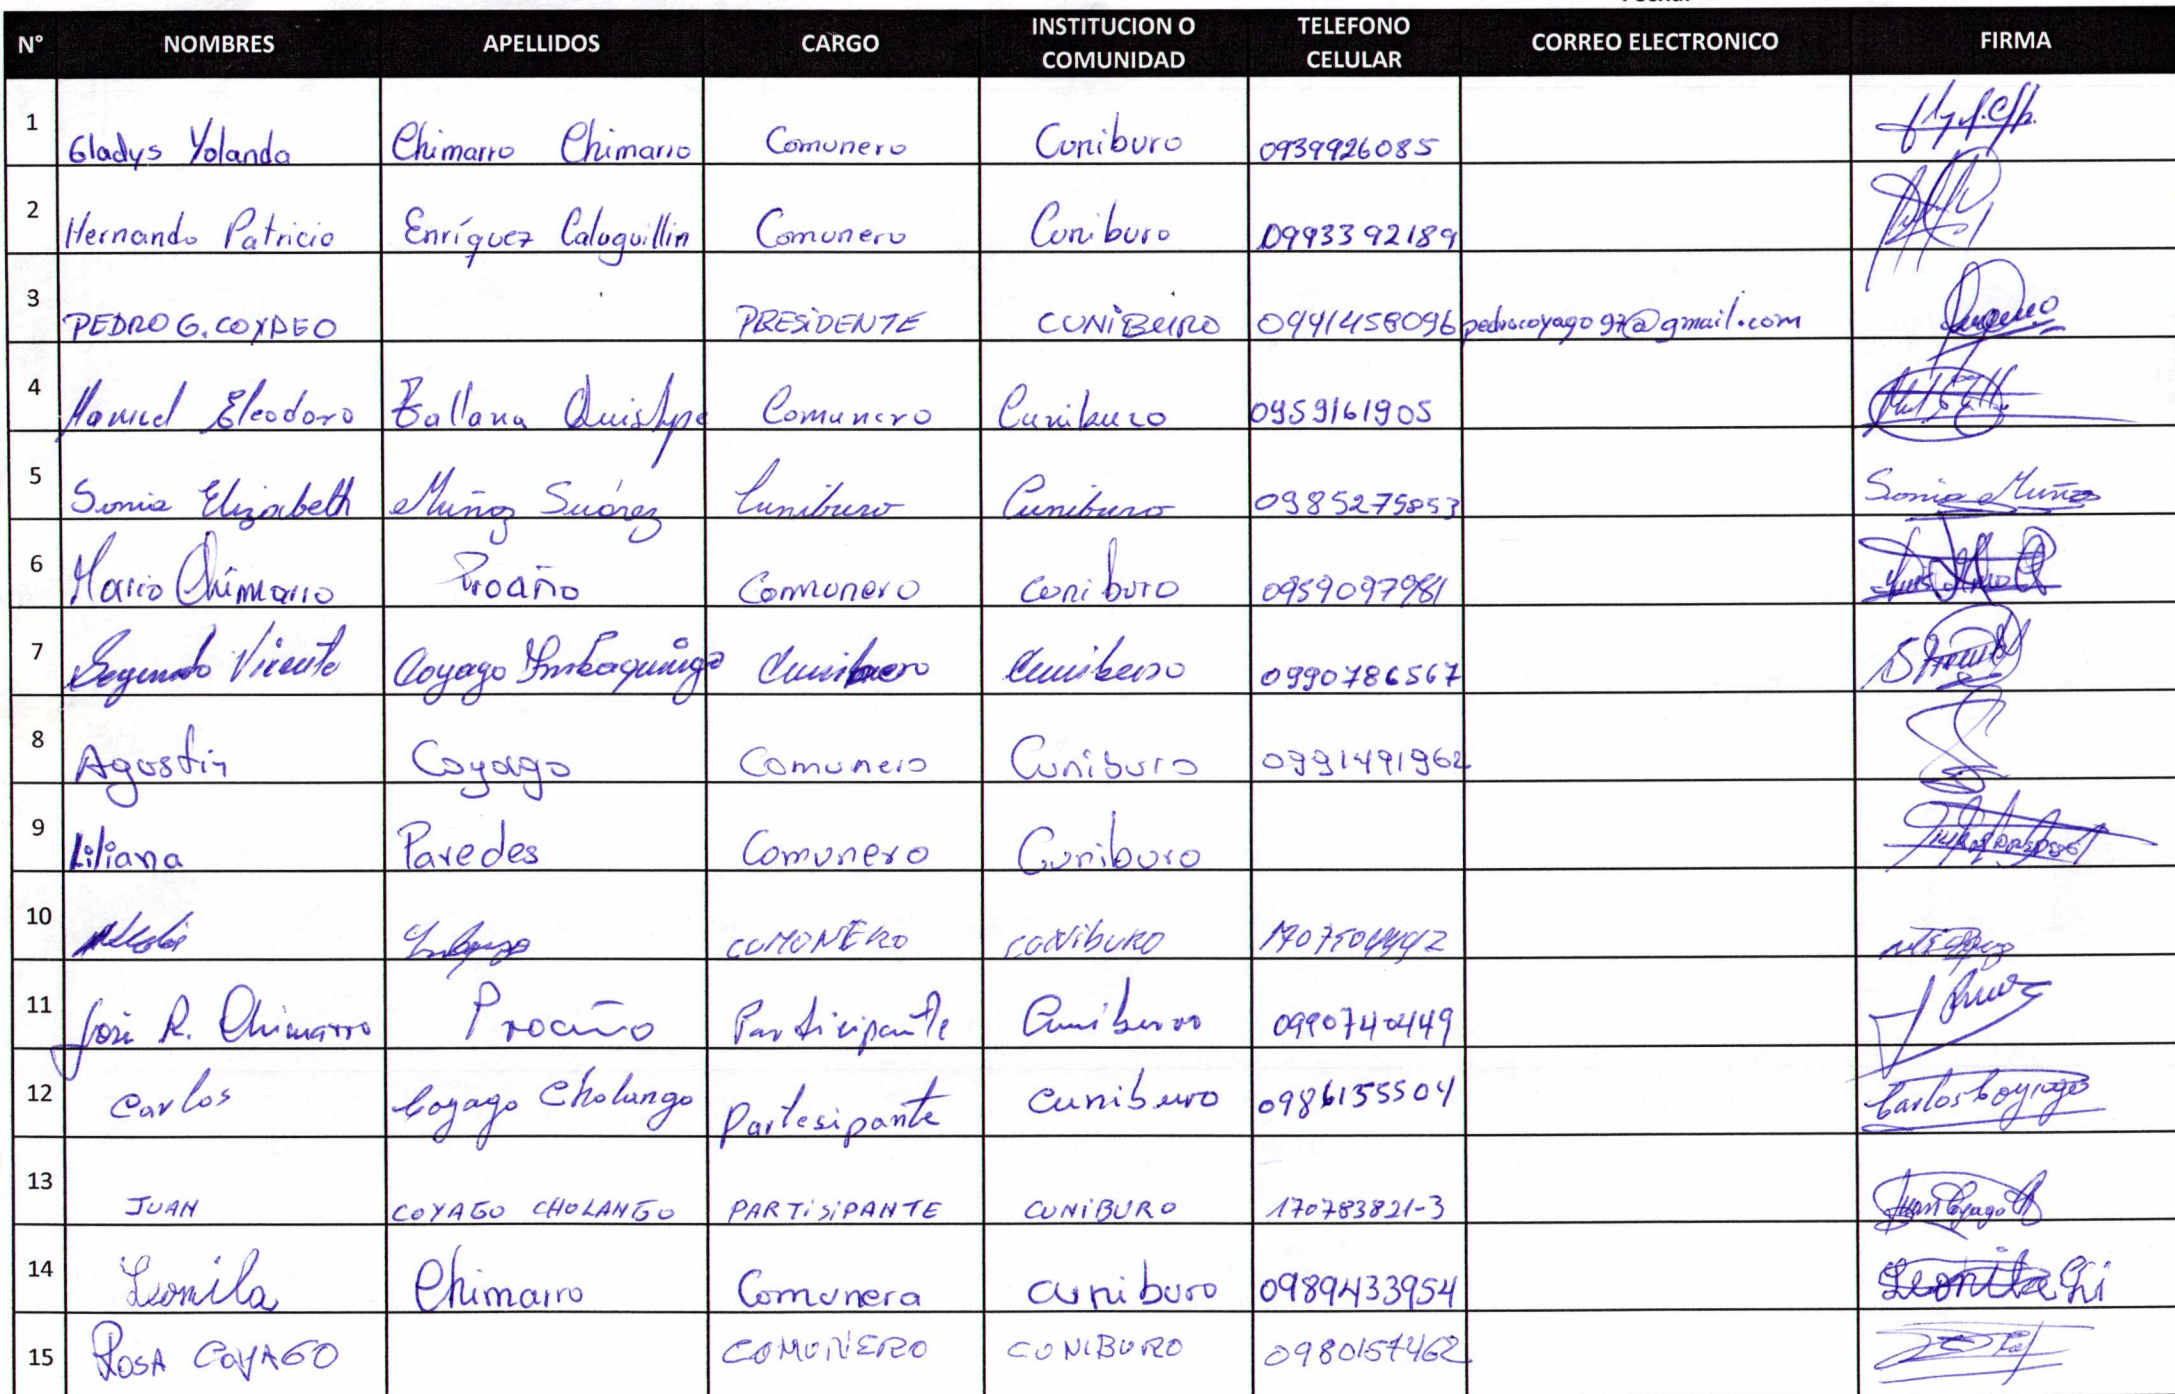 N° NOMBRES APELLIDOS CARGO INSTITUCION O COMUNIDAD TELEFONO CELULAR CORREO ELECTRONICO FIRMA
1 Gladys Yolanda Chimarro Chimarro Comunero Cuniburo 0939926085
2 Hernando Patricio Enríquez Caluguillin Comunero Cuniburo 0993392189
3 PEDRO G. COYAGO PRESIDENTE CUNIBURO 0941458096 pedrocoyago97@gmail.com
4 Manuel Eleodoro Comunero Cuniburo 0959161905
5 Sonia Elizabeth Muñoz Suárez Cuniburo Cuniburo 0985275853 Sonia Muñoz
6 Mario Chimarro Proaño Comunero Cuniburo 0959097981
7 Segundo Vicente Coyago Cuniburo Cuniburo 0990786567
8 Agustin Coyago Comunero Cuniburo 0991491962
9 Liliana Paredes Comunero Cuniburo
10 COMONERO CONIBURO
11 José R. Chimarro Proaño Participante Cuniburo 0990740449
12 Carlos Coyago Cholango Partesipante Cuniburo 0986135504 Carlos Coyago
13 JUAN COYAGO CHOLANGO PARTISIPANTE CUNIBURO 170783821-3 Juan Coyago
14 Leonila Chimarro Comunera Cuniburo 0989433954 Leonila Chi
15 ROSA COYAGO COMUNERO CUNIBURO 0980157462